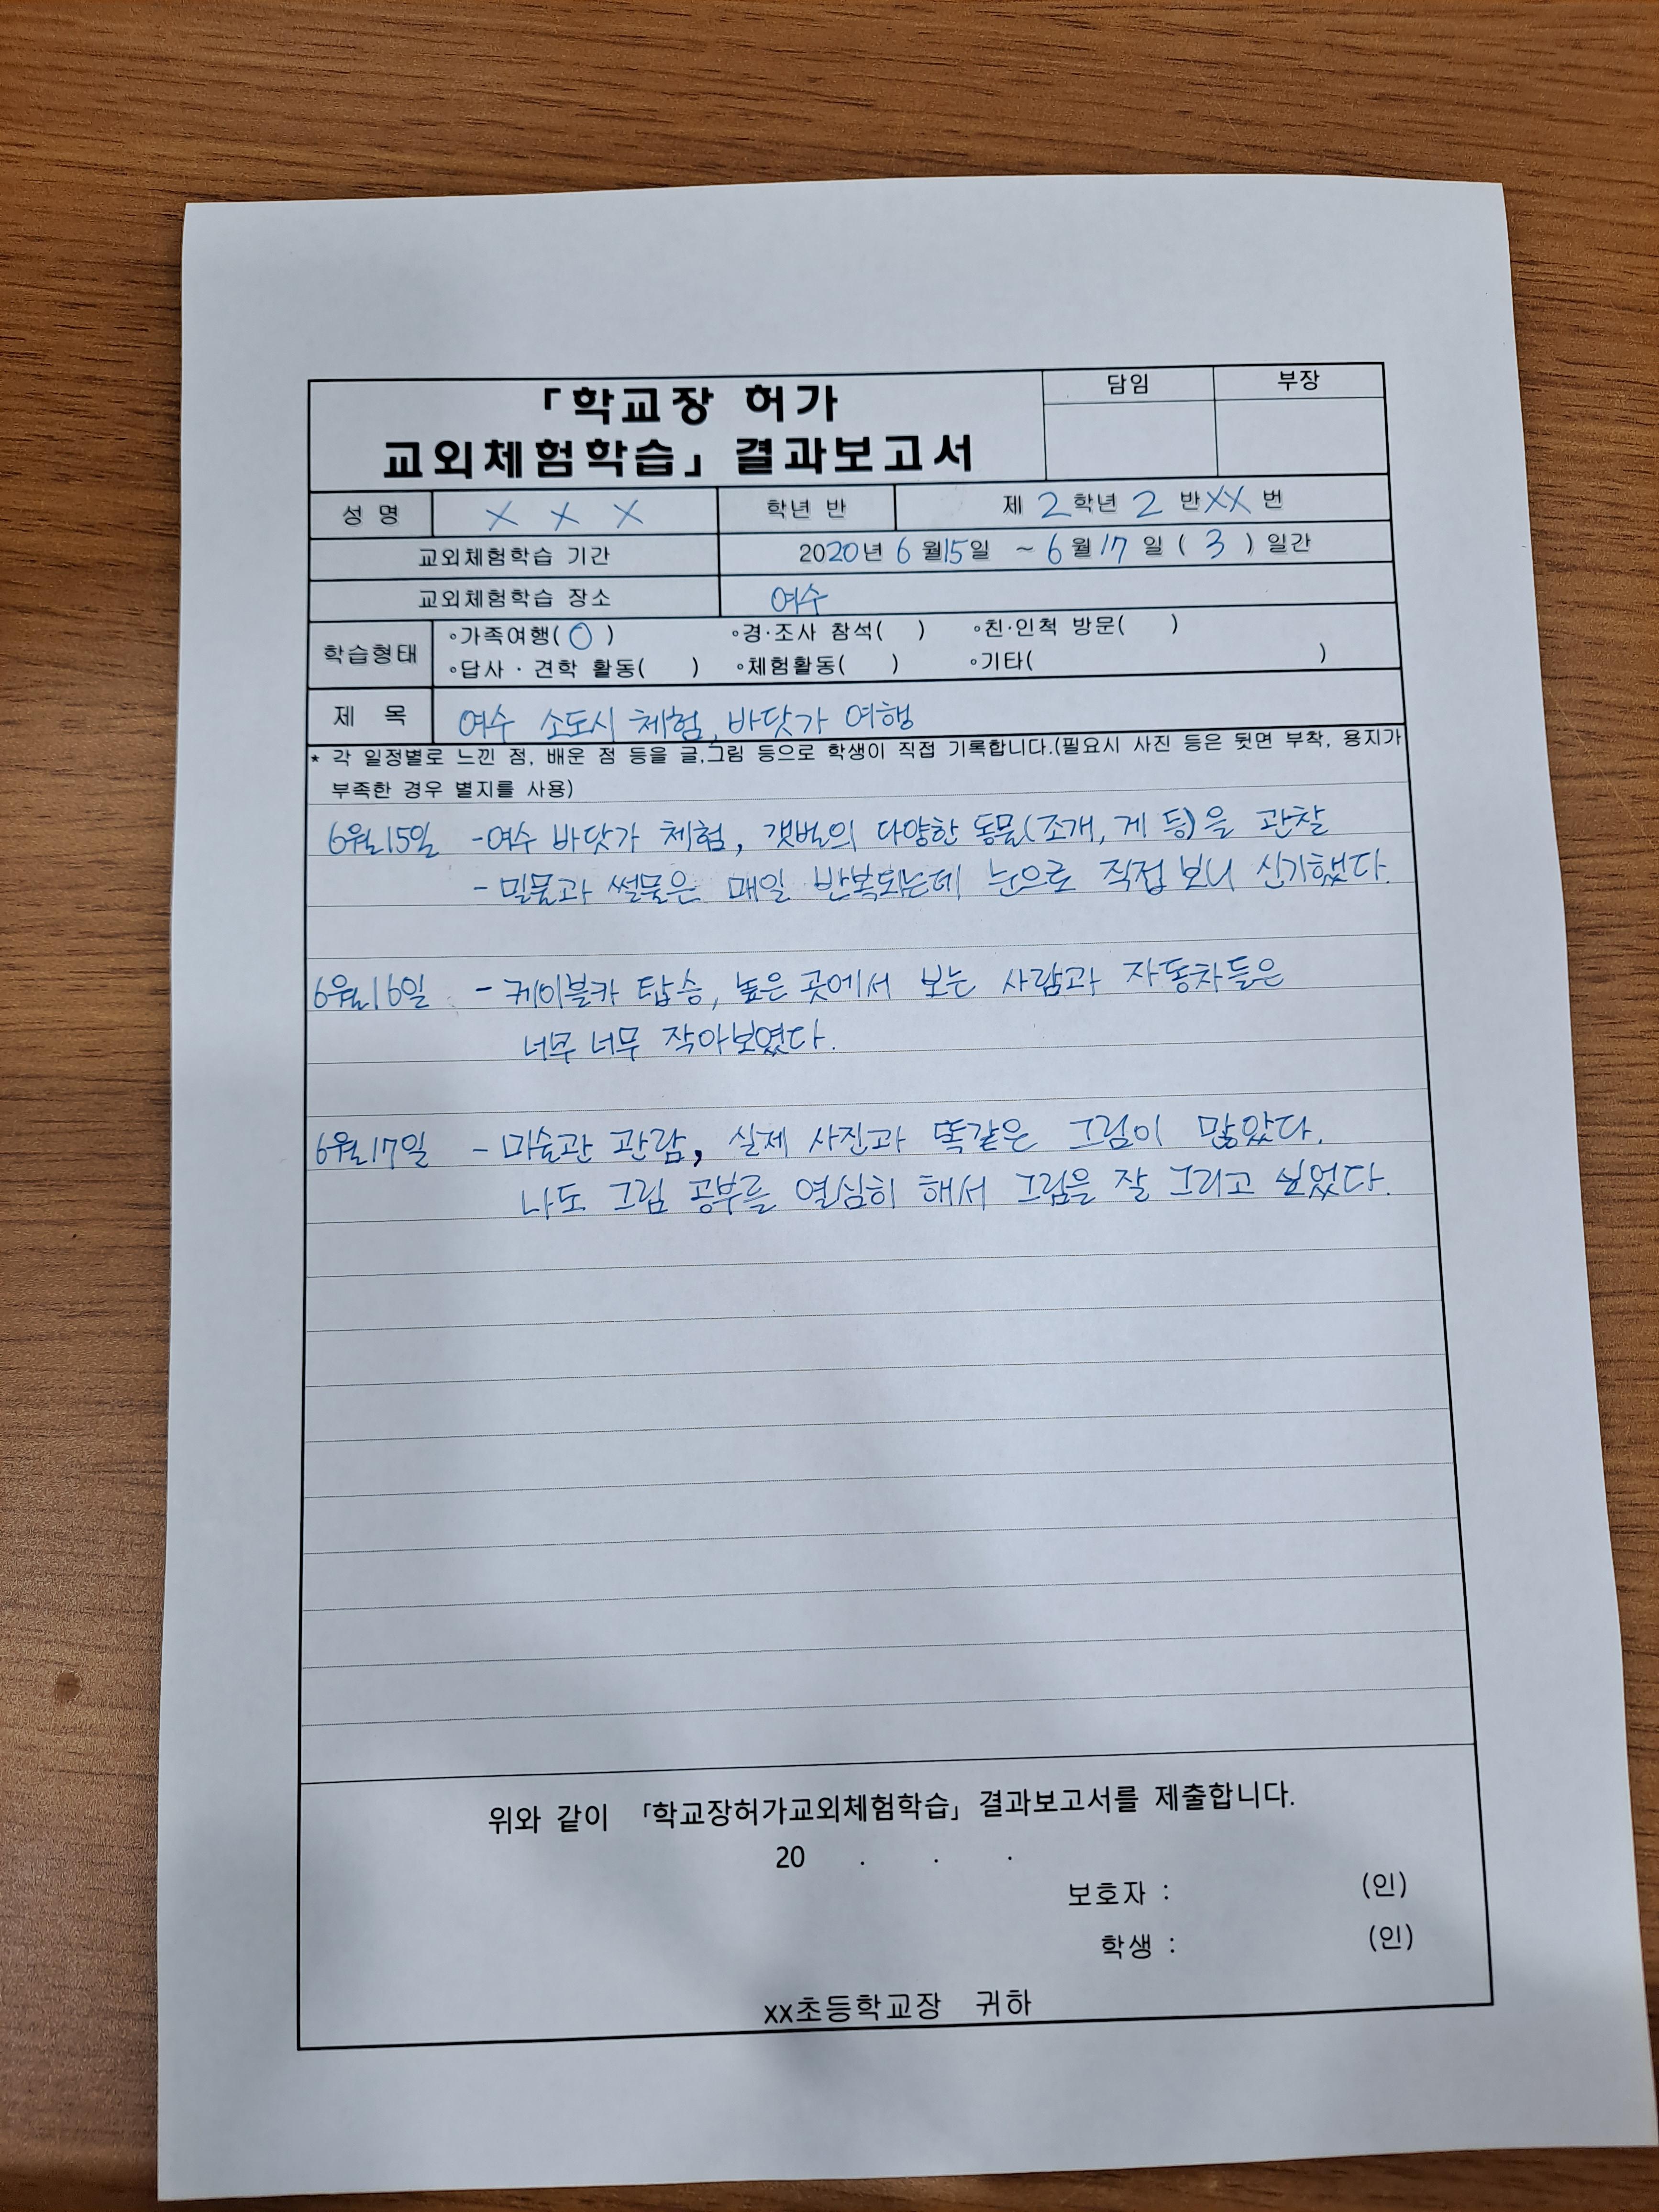 「학교장 허가
교외체험학습」 결과보고서
담임 부장
성 명 X X X 학년 반 제 2 학년 2 반 XX 번
교외체험학습 기간 2020년 6 월 15일 ~ 6 월 17 일 ( 3 ) 일간
교외체험학습 장소 여수
학습형태
◦가족여행( O ) ◦경·조사 참석( ) ◦친·인척 방문( )
◦답사 · 견학 활동( ) ◦체험활동( ) ◦기타( )
제 목 여수 소도시 체험, 바닷가 여행
* 각 일정별로 느낀 점, 배운 점 등을 글,그림 등으로 학생이 직접 기록합니다.(필요시 사진 등은 뒷면 부착, 용지가
부족한 경우 별지를 사용)
6월15일 -여수 바닷가 체험, 갯벌의 다양한 동물(조개, 게 등)을 관찰
- 밀물과 썰물은 매일 반복되는데 눈으로 직접 보니 신기했다.
6월16일 - 케이블카 탑승, 높은 곳에서 보는 사람과 자동차들은
너무 너무 작아보였다.
6월17일 - 미술관 관람, 실제 사진과 똑같은 그림이 많았다.
나도 그림 공부를 열심히 해서 그림을 잘 그리고 싶었다.
위와 같이 「학교장허가교외체험학습」 결과보고서를 제출합니다.
20 . . .
보호자 : (인)
학생 : (인)
xx초등학교장 귀하